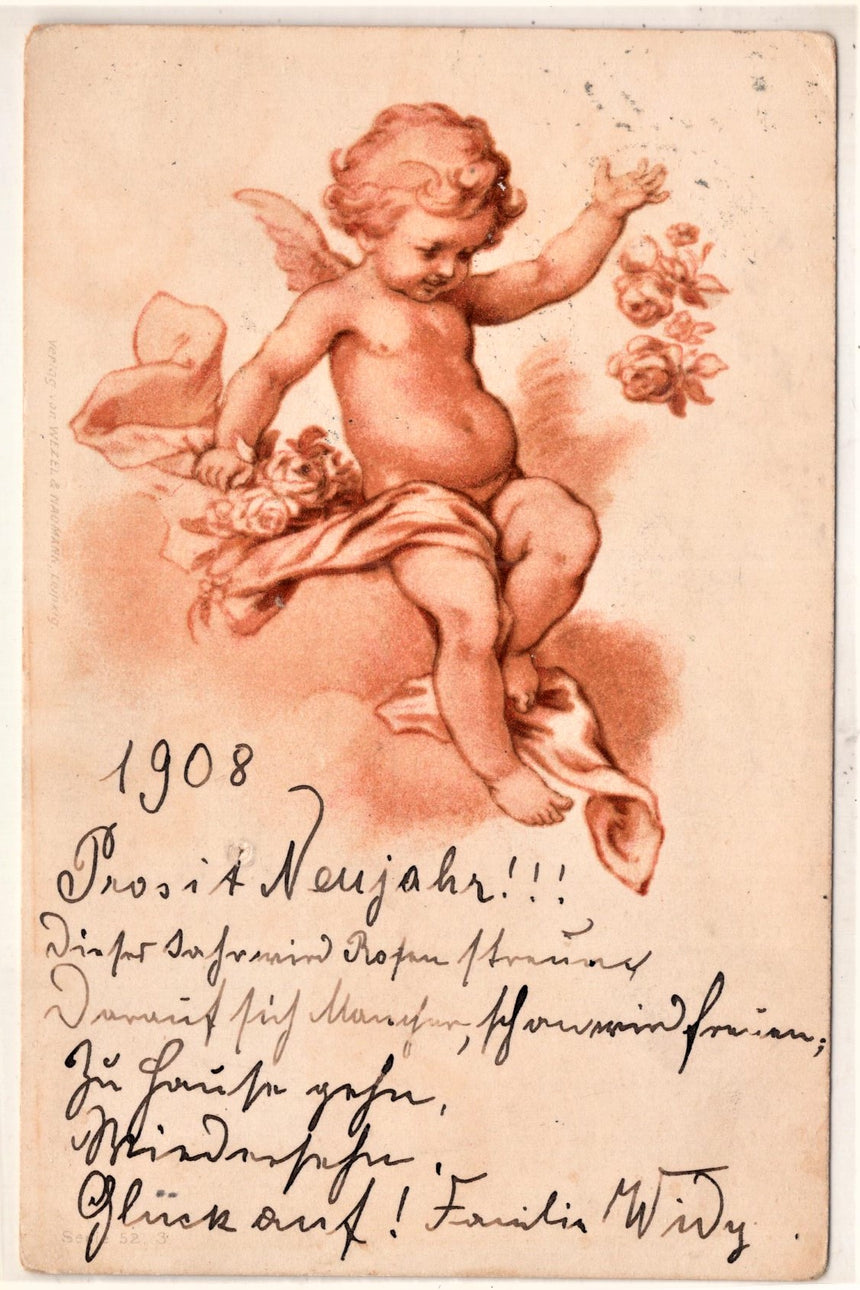 Verlag von WEZEL & NAUMANN, Leipzig
1908
Prosit Neujahr!!!
Dieses Jahr wird Rosen streuen
Darauf sich Mancher, schon wird freuen;
Zu Hause gehn,
Wiedersehn.
Glück auf! Familie Widy.
Serie 52. 3